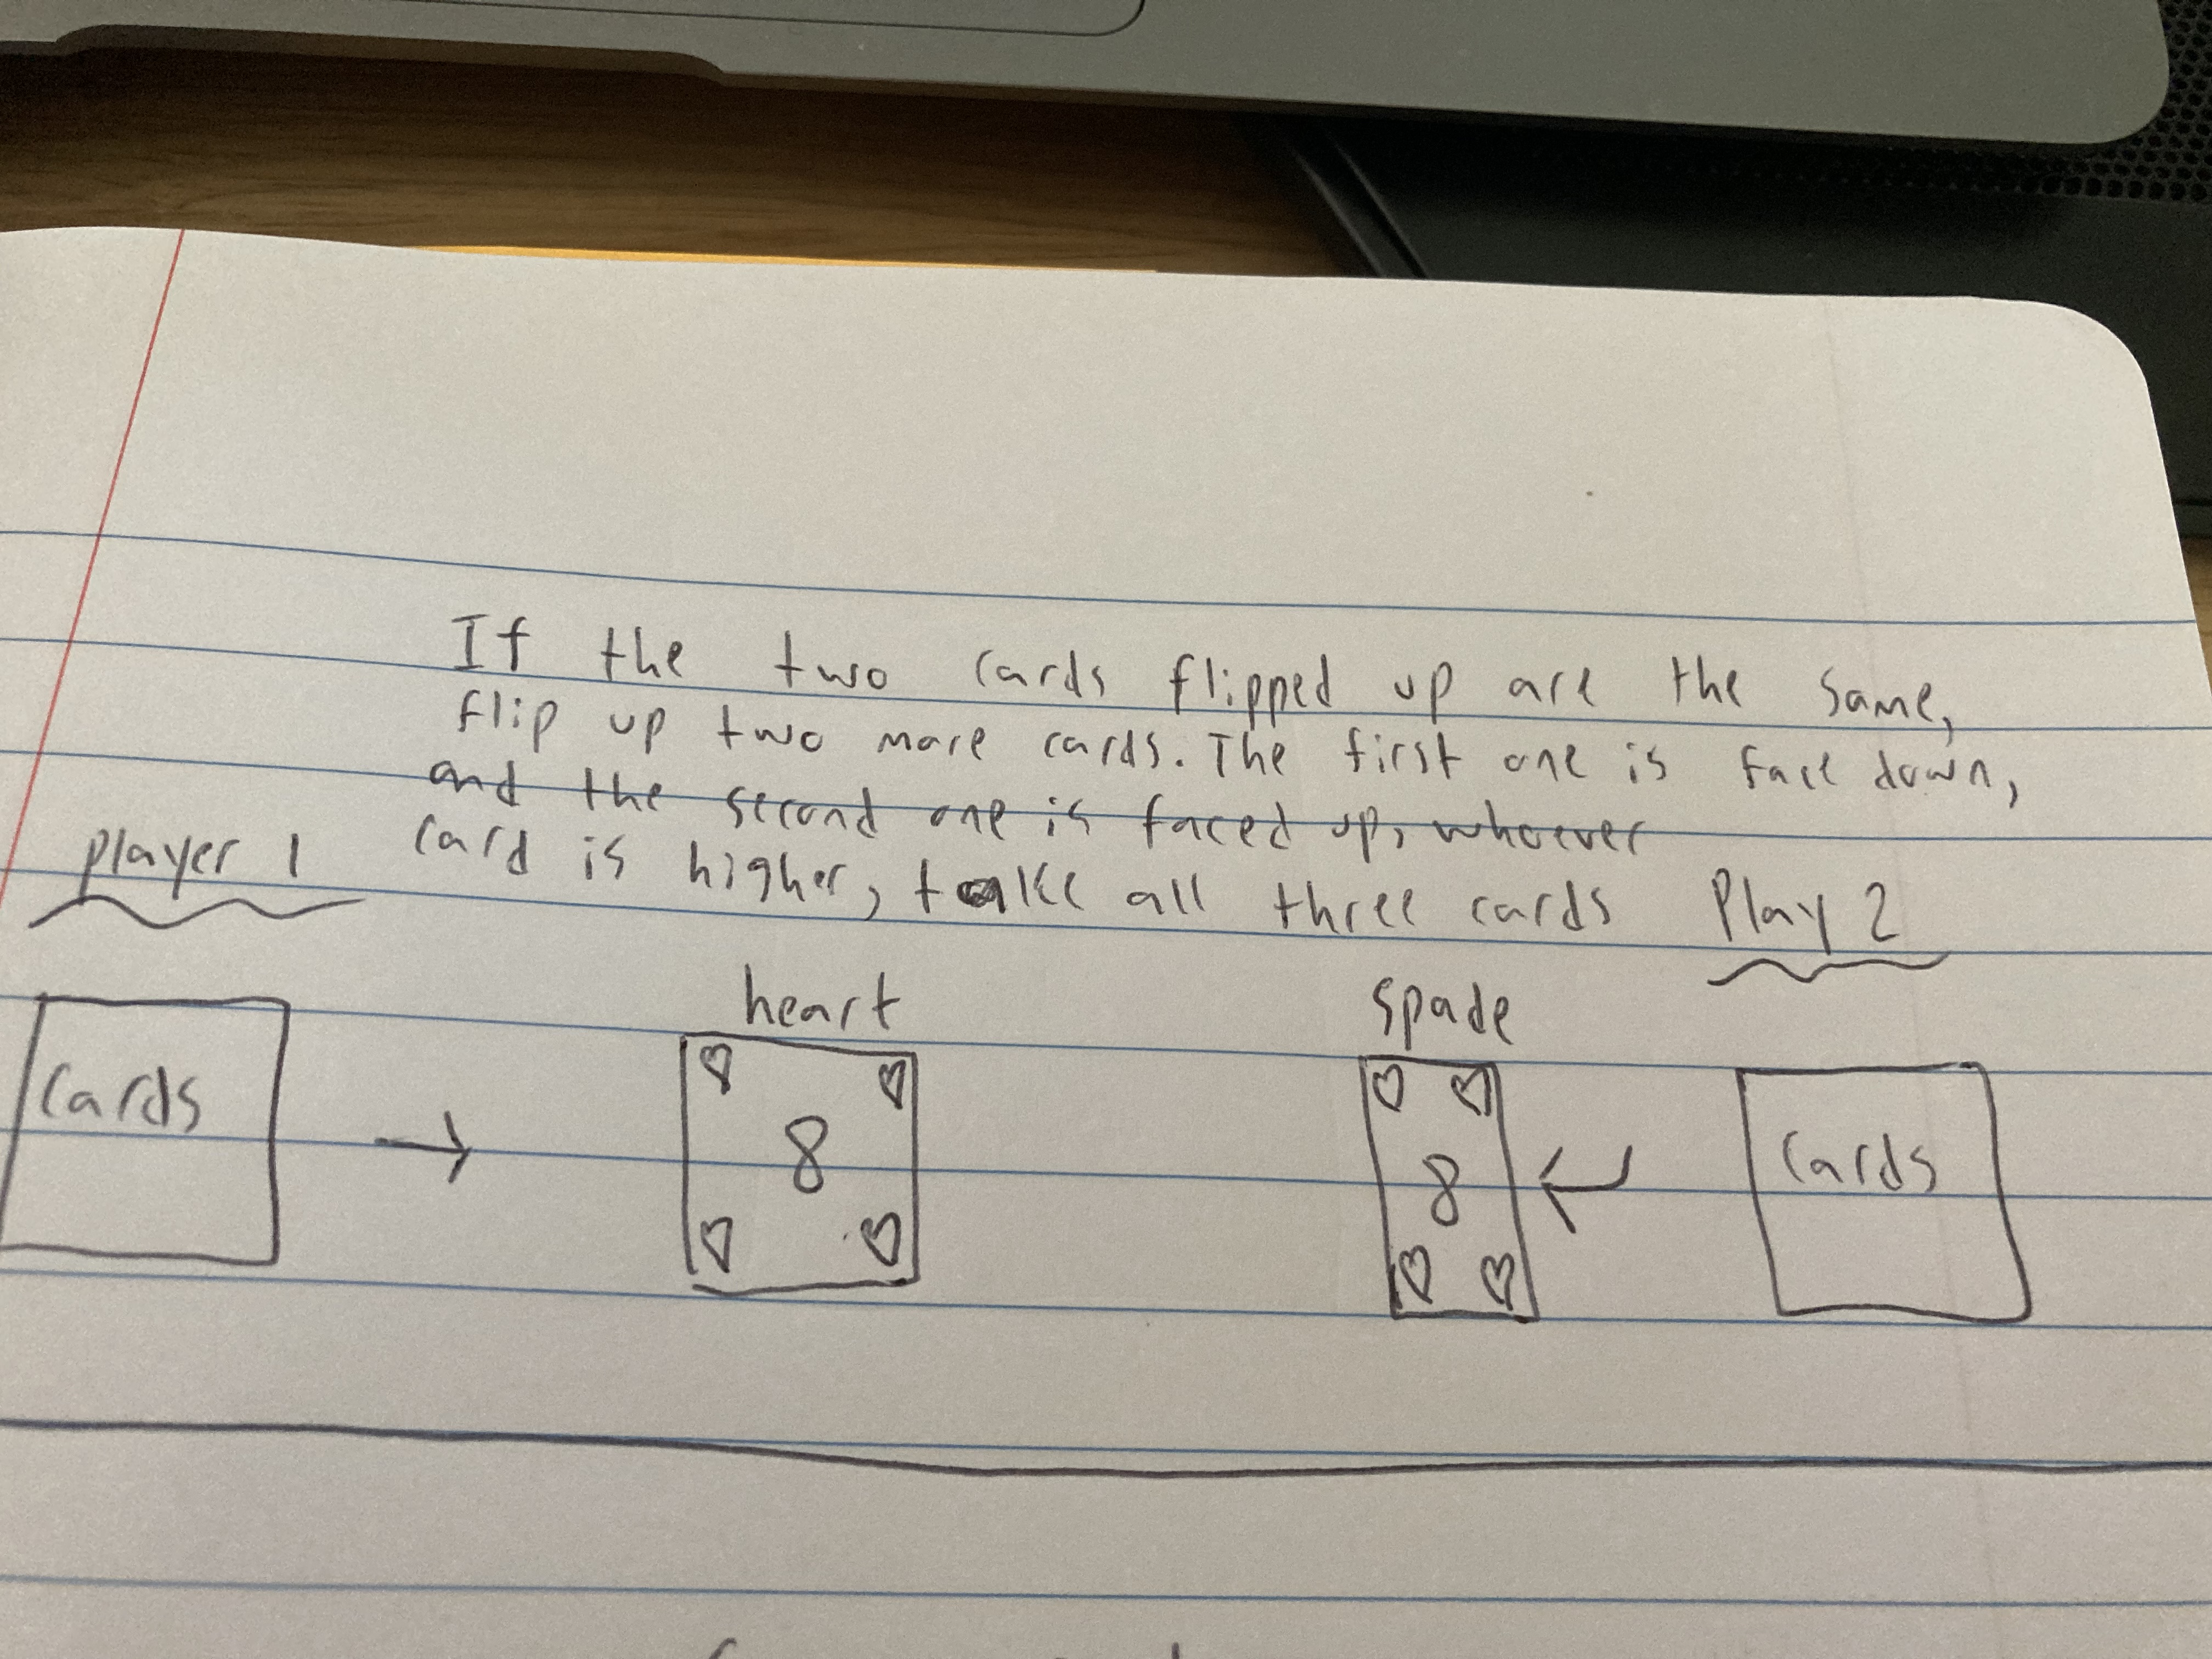 If the two cards flipped up are the same,
flip up two more cards. The first one is face down,
and the second one is faced up, whoever
card is higher, take all three cards
player 1
play 2
heart
spade
cards
8
8
cards